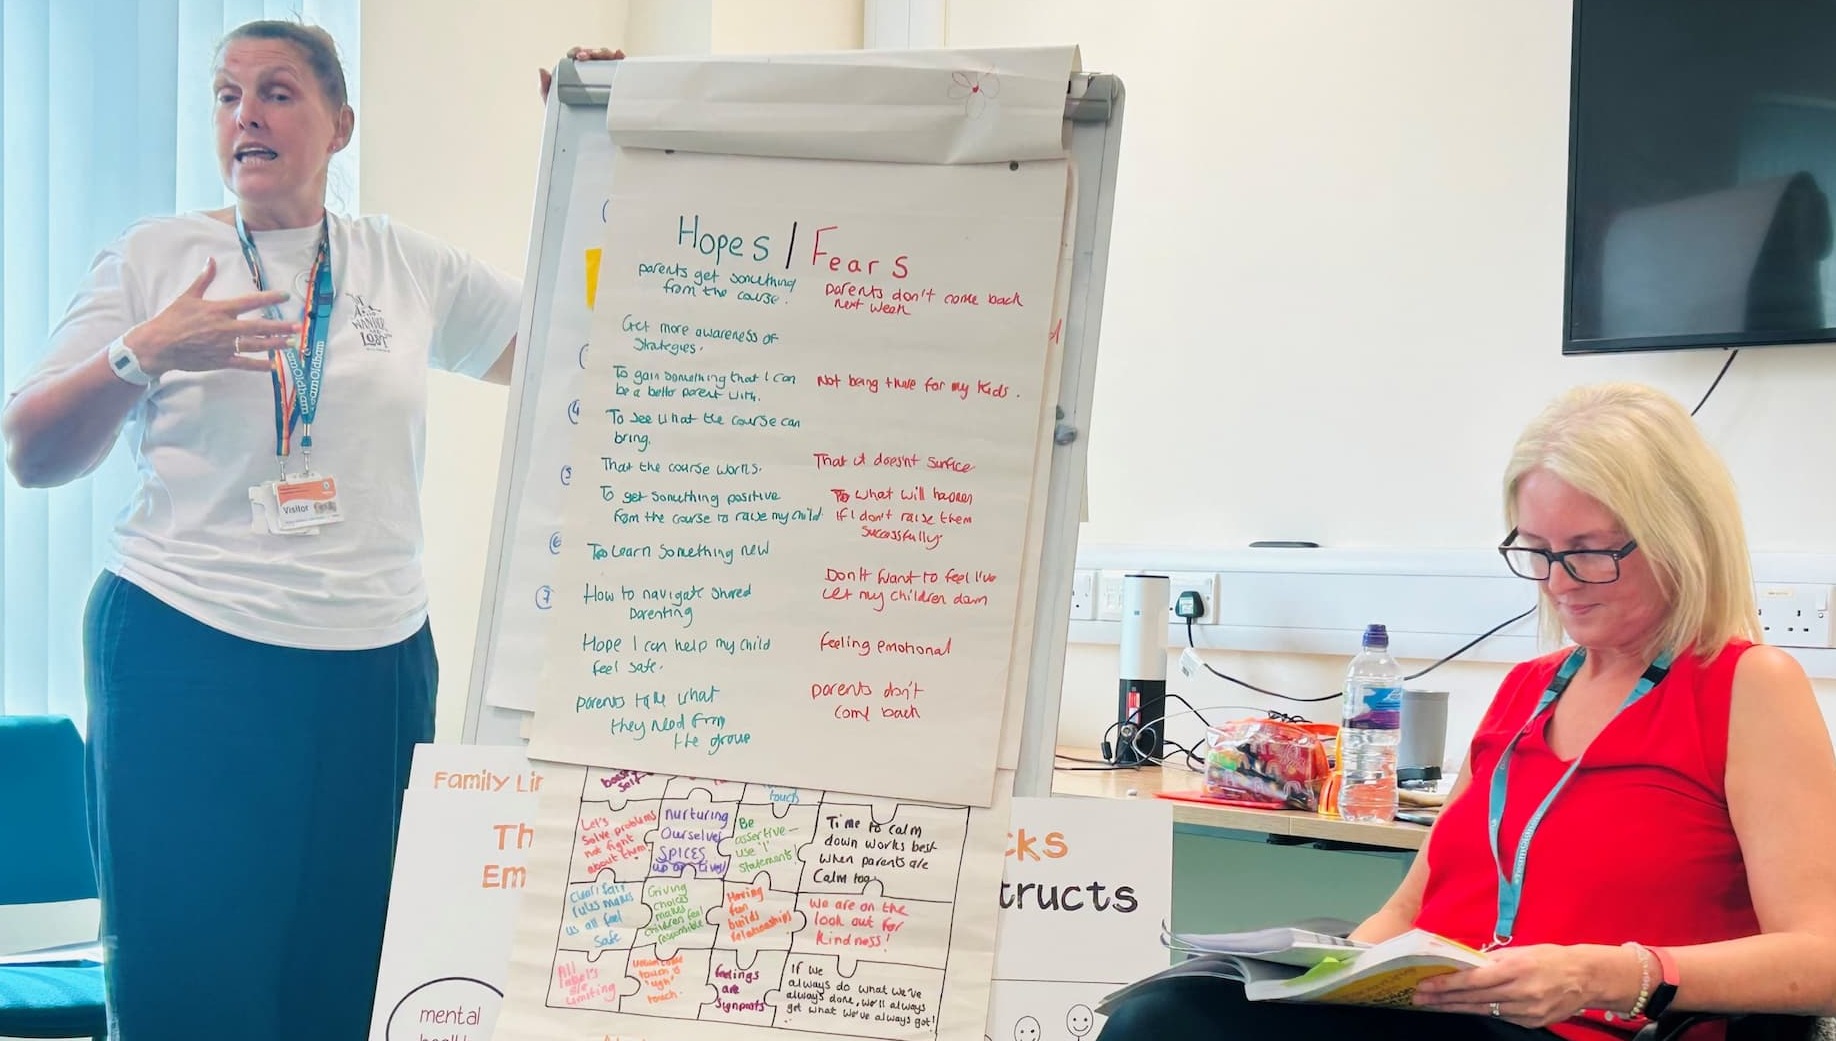 Hopes | Fears
parents get something
from the course.
parents don't come back
next week
Get more awareness of
Strategies.
To gain something that I can
be a better parent with.
Not being there for my kids.
To see what the course can
bring.
That the course works.
That it doesn't surface
To get something positive
from the course to raise my child.
To what will happen
If I don't raise them
Successfully.
To Learn Something new
How to navigate shared
parenting
Don't want to feel I've
let my children down
Hope I can help my child
feel safe.
feeling emotional
parents take what
they need from
the group
parents don't
come back
4
5
6
7
WANDER
LOST
TeamOldham
TeamOldham
Visitor
Family Lin
Th
Em
cks
tructs
mental
self
touch
Let's
Solve problems
not fight
about them!
nurturing
Ourselves
SPICES
up our lives!
Be
assertive -
use 'I'
Statements!
Time to calm
down works best
when parents are
Calm too.
Clear/fair
rules makes
us all feel
safe
Giving
choices
makes
children feel
responsible
Having
fun
builds
relationships
We are on the
look out for
kindness!
All
label's
are
limiting
touch's
'ugh'
touch.
feelings
are
Signposts
If we
always do what we've
always done, we'll always
get what we've always got!